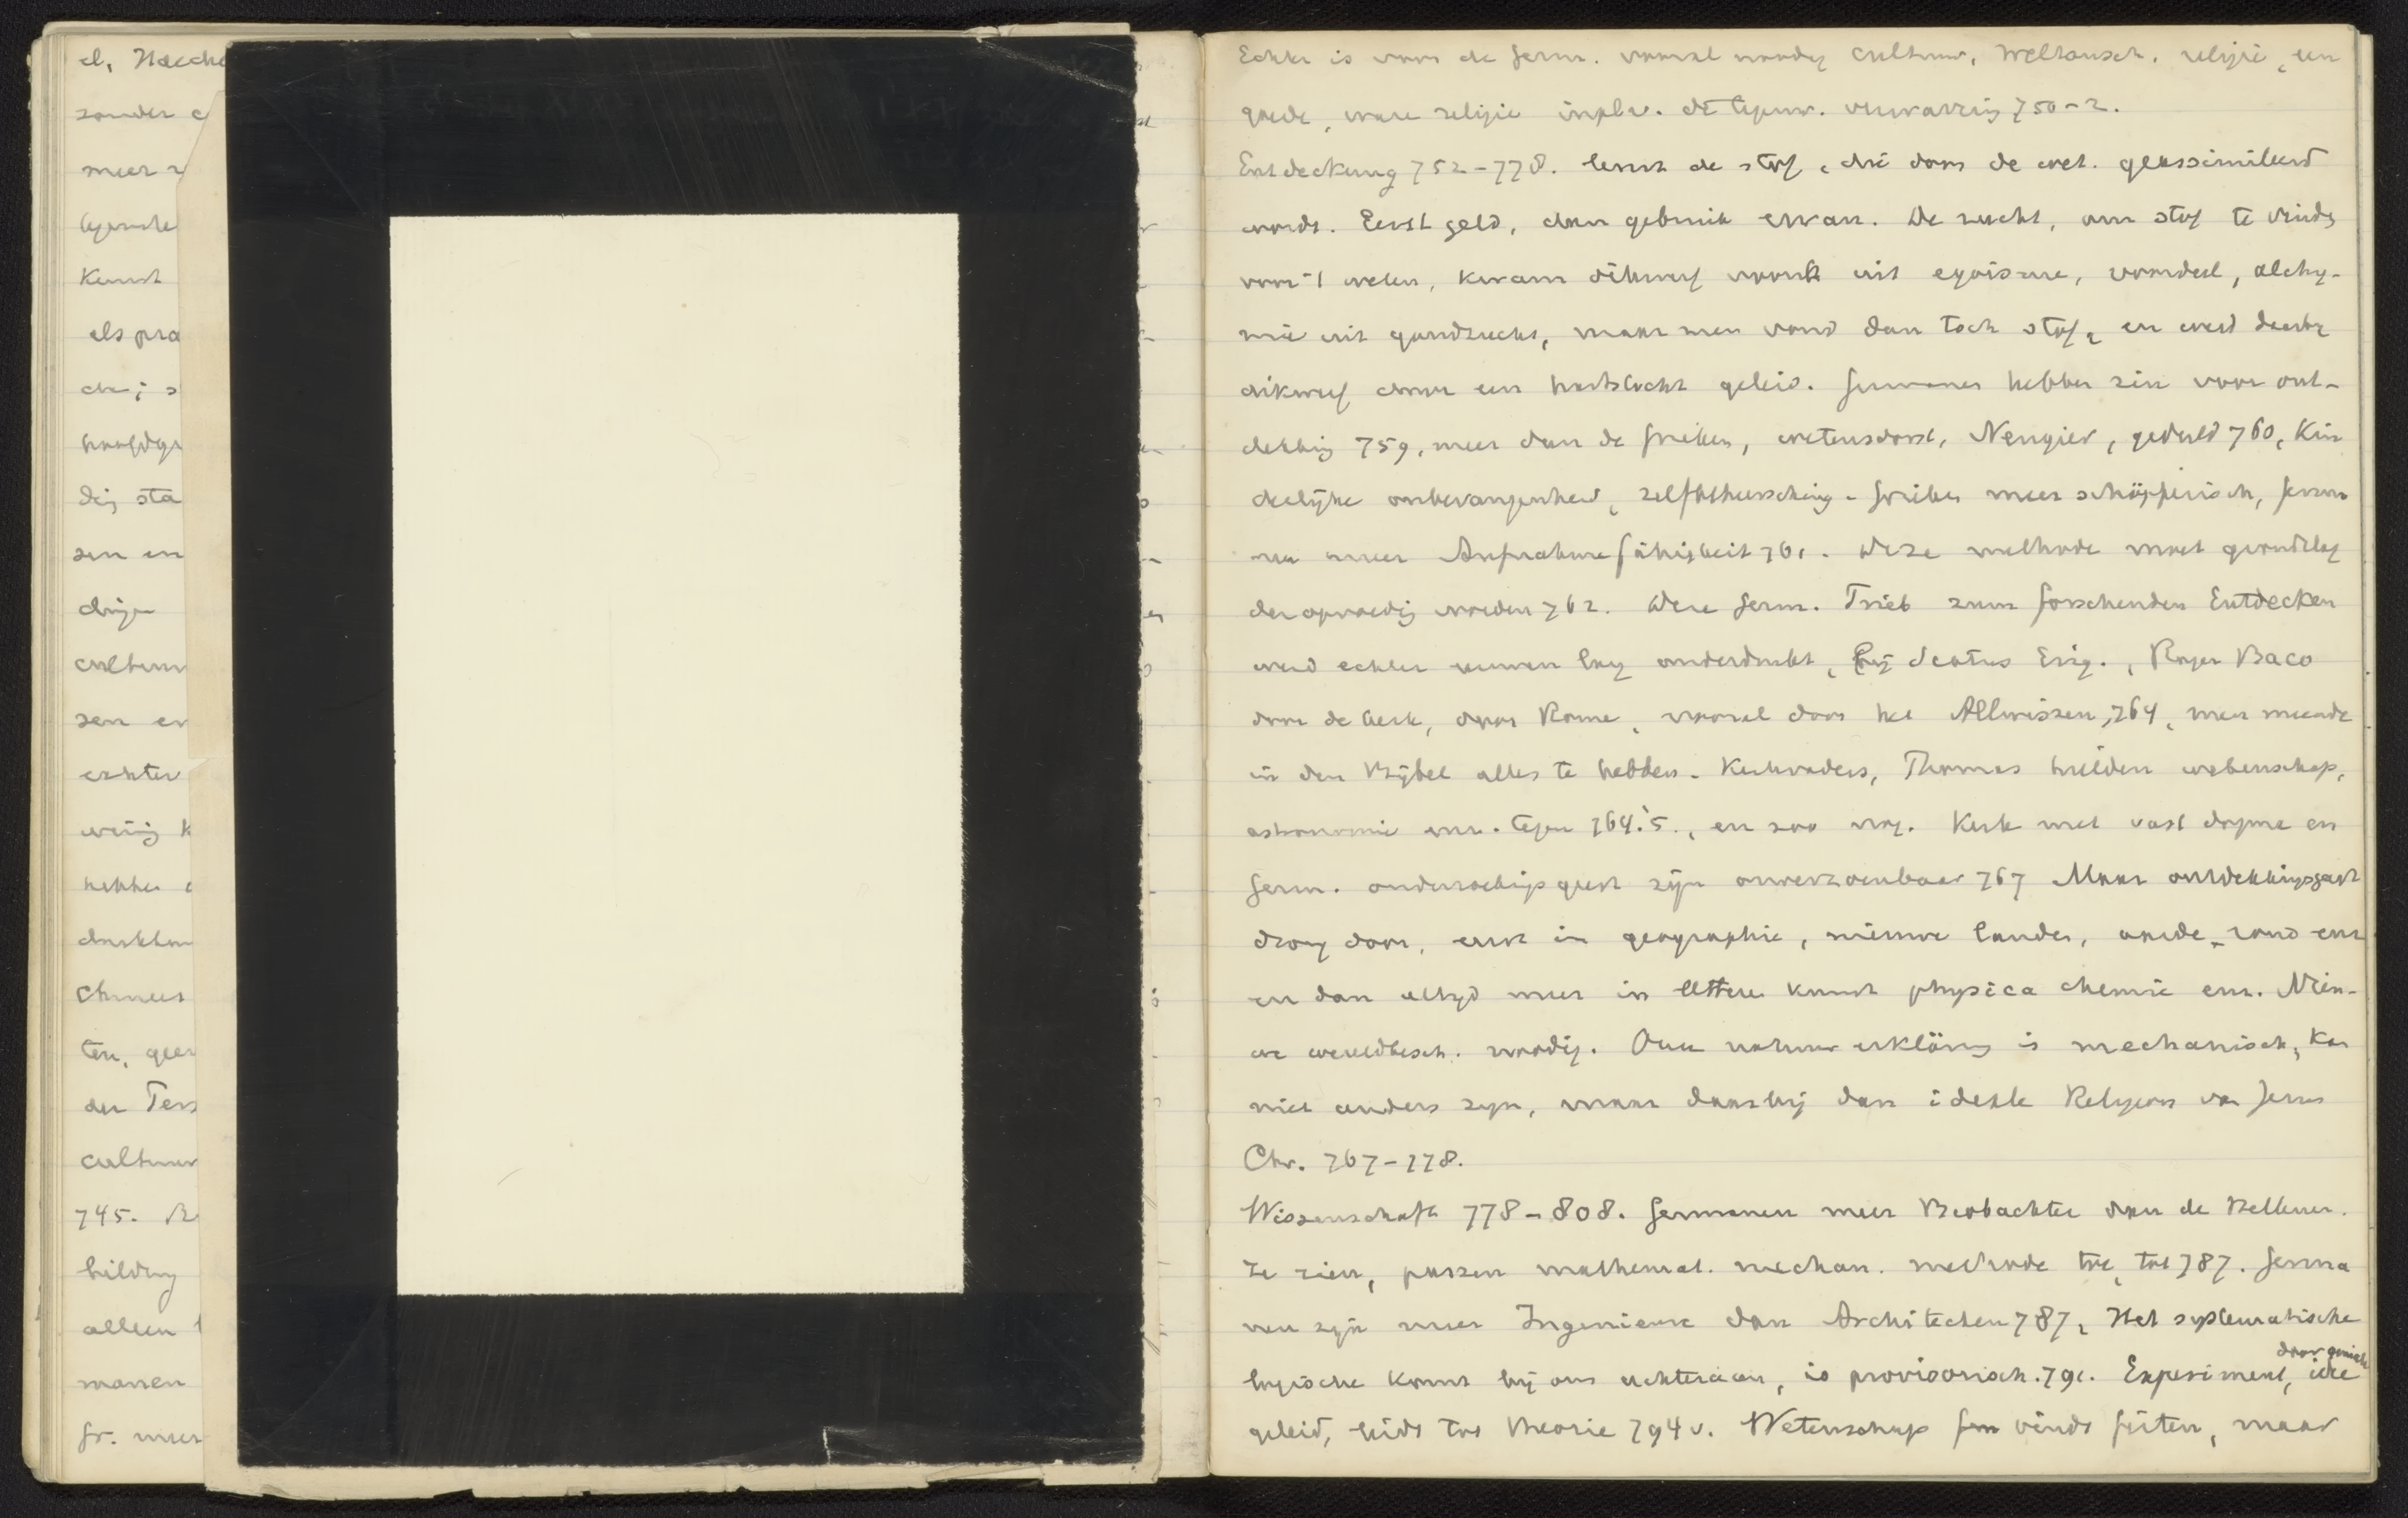 el, Haecke
zonder
meer
tegenste
Kunst
als pra
hoofdge
dig sta
zen en
dinge
cultuur
zen en
echter
weinig k
hebben
ten, geen
der Ters
cultuur
745. Be
bilding
alleen
manen
Gr. meer
Echter is voor de Germ. vooral noodig cultuur, Weltansch. religie, een
goede, ware religie inplv. de tegenw. verwarring 750-2.
Entdeckung 752-778. levert de stof, die door de wet. geassimileerd
wordt. Eerst geld, dan gebruik ervan. De zucht, om stof te vinden
voor 't weten, kwam dikwerf voort uit egoisme, voordeel, alchy-
mie uit goudzucht, maar men vond dan toch stof, en werd daarbij
dikwerf door een hartstocht geleid. Germanen hebben zin voor ont-
dekking 759, meer dan de Grieken, wetensdorst, Neugier, geduld 760, Kin
derlijke onbevangenheid, zelfbeheersching - Grieken meer schöpferisch, Germa
nen meer Aufnahmefähigkeit 761. Deze methode moet grondslag
der opvoeding worden 762. Deze Germ. Trieb zum forschenden Entdecken
werd echter eeuwen lang onderdrukt, bij Scotus Erig., Roger Baco
door de kerk, door Rome, vooral door het Allwissen, 764, men meende
in den Bijbel alles te hebben. Kerkvaders, Thomas hielden wetenschap,
astronomie enz. tegen 764.5., en zoo nog. Kerk met vast dogma en
Germ. onderzoekingsgeest zijn onverzoenbaar 767 Maar ontdekkingsgeest
drong door, eerst in geographie, nieuwe landen, aarde rond enz
en dan altijd meer in kunst physica chemie enz. Nieu-
we wereldbesch. noodig. Onze natuur erklärung is mechanisch, kan
niet anders zijn, maar daarbij dan ideale Religion van Jezus
Chr. 767-778.
Wissenschaft 778-808. Germanen meer Beobachter dan de Hellenen.
Ze zien, passen mathemat. mechan. methode toe, tot 787. Germa
nen zijn meer Ingenieure dan Architecten 787, Het systematische
logische komt bij ons achteraan, is provisorisch. 791. Experiment, door genial idee
geleid, leidt tot theorie 794 v. Wetenschap vindt feiten, maar